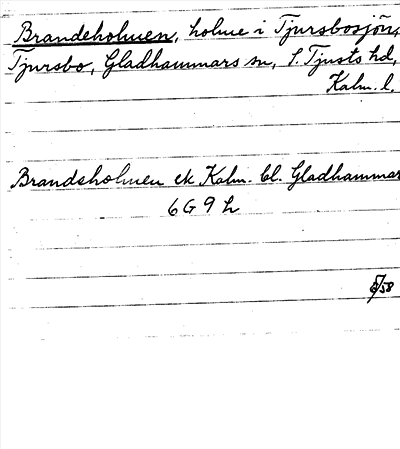 Brandeholmen, holme i Tjursbosjön,
Tjursbo, Gladhammars sn, S. Tjusts hd,
Kalm. l.
Brandsholmen ek Kalm. bl. Gladhammar
6 G 9 h
58